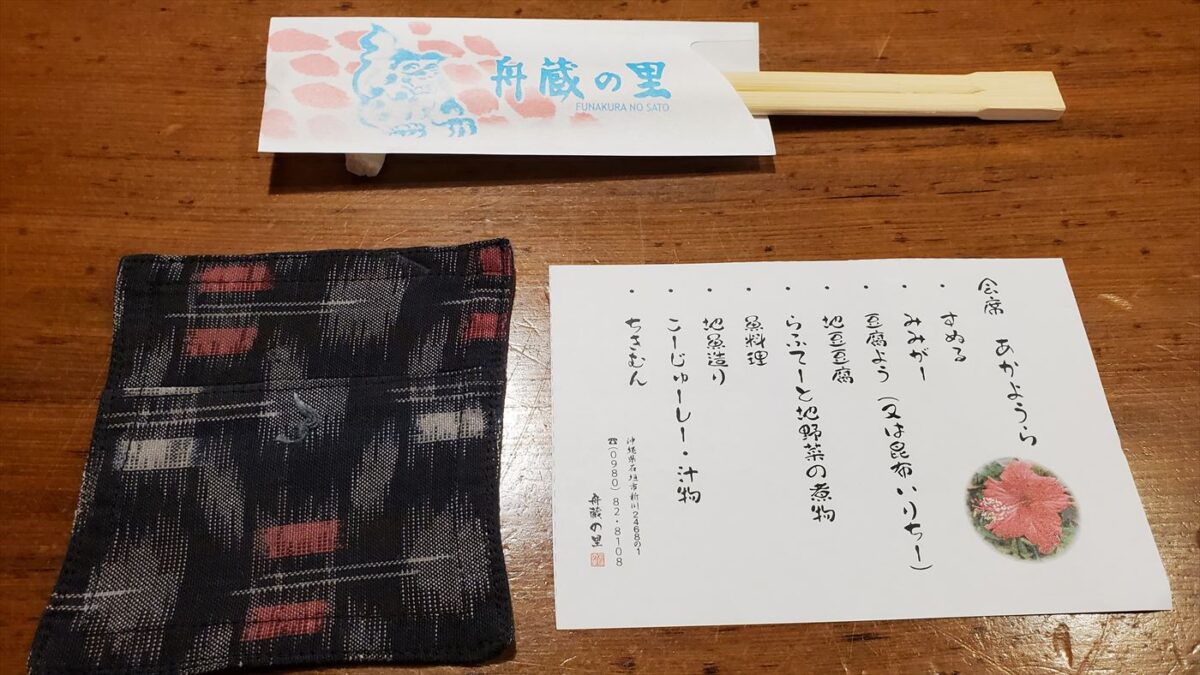 舟蔵の里
FUNAKURA NO SATO
会席 あかようら
・すぬる
・みみがー
・豆腐よう(又は昆布いりちー)
・地豆豆腐
・らふてーと地野菜の煮物
・魚料理
・地魚造り
・こーじゅーしー・汁物
・ちきむん
沖縄県石垣市新川2468の1
☎(0980)82・8108
舟蔵の里